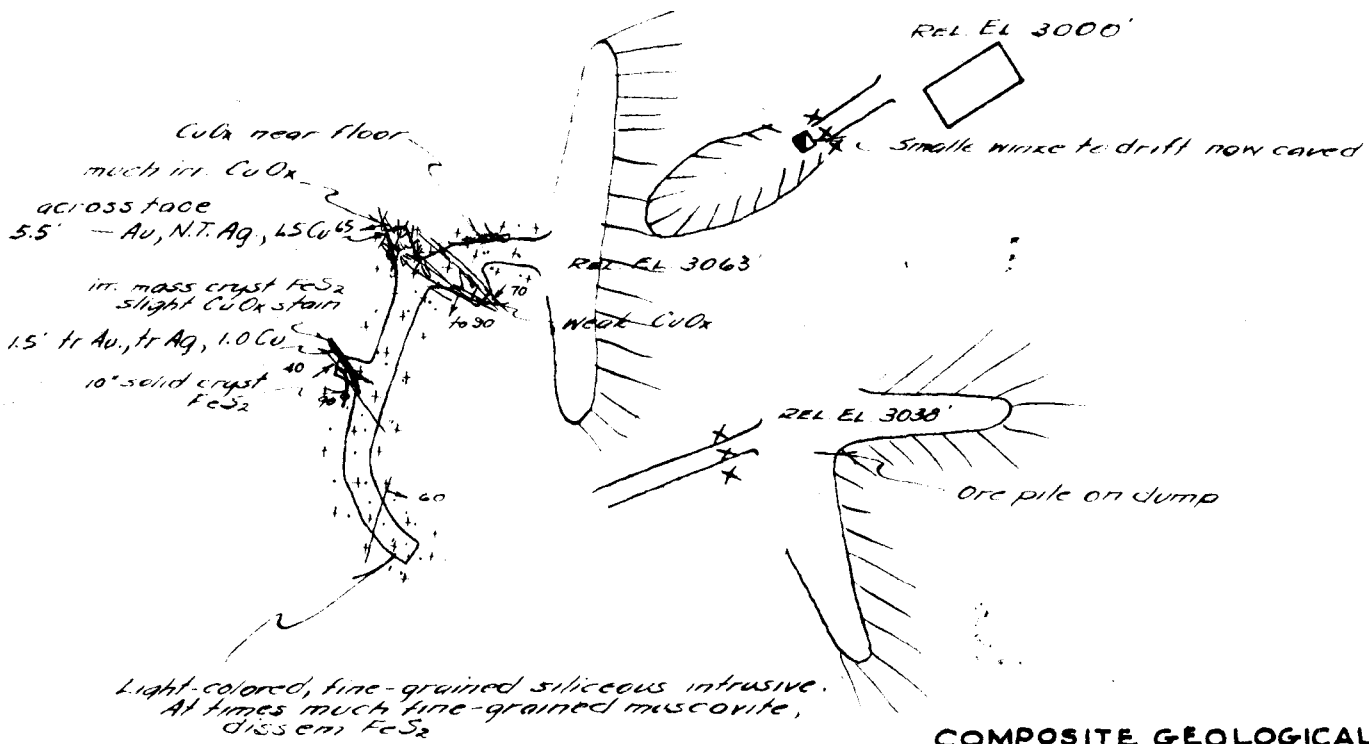 REL. EL 3000'
CuOx near floor
Small winze to drift now caved
much irr. CuOx
across face
5.5' — Au, N.T. Ag, 1.5 Cu
65
REL. EL 3063'
irr. mass cryst FeS2
slight CuOx stain
70
to 90
Weak CuOx
1.5' tr Au., tr Ag, 1.0 Cu
40
10" solid cryst
FeS2
90
REL. EL 3038'
60
Ore pile on dump
Light-colored, fine-grained siliceous intrusive.
At times much fine-grained muscovite,
dissem FeS2
COMPOSITE GEOLOGICAL